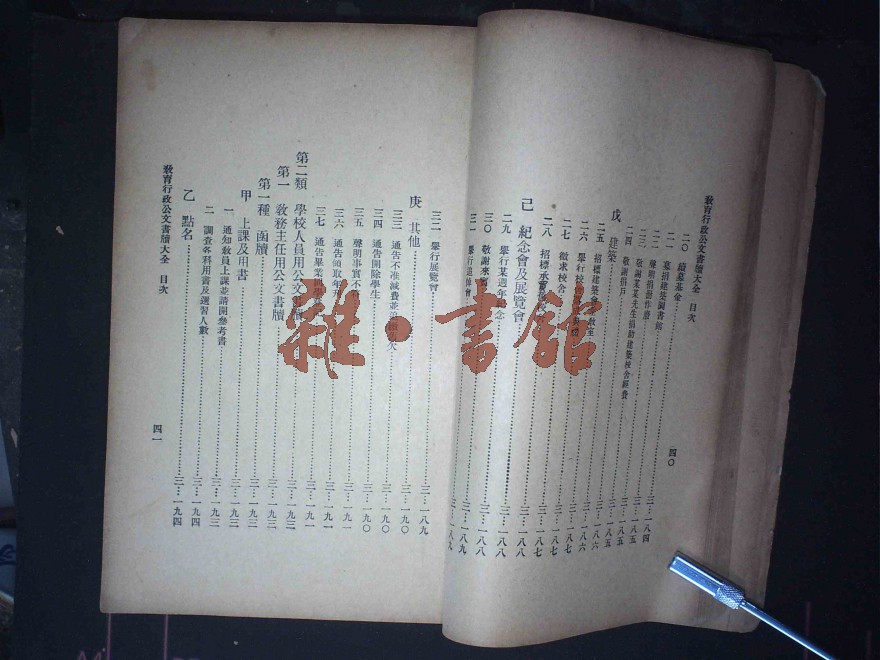 教育行政公文書牘大全 目次
二〇 續募基金
二一 募捐建築圖書館
二二 聲明捐
二三 敬謝某某先生捐助建築校舍經費 三…一八四
二四 敬謝捐戶 三…一八五
戊 建築 三…一八五
二五 招標建築會 教室 三…一八五
二六 舉行校 三…一八六
二七 徵求校舍 三…一八七
二八 招標承 三…一八七
己 紀念會及展覽會 三…一八八
二九 舉行某週年 念 三…一八八
三〇 敬謝來賓 三…一八八
三一 舉行追悼會 三…一八九
四〇
三二 舉行展覽會 三…一八九
庚 其他 三…一九〇
三三 通告不准減費並 欠 三…一九〇
三四 通告開除學生 三…一九〇
三五 聲明事實不符 三…一九〇
三六 通告領取年 三…一九一
三七 通告畢業同學 三…一九一
第二類 學校人員用公文書牘 三…一九三
第一 教務主任用公文書牘 三…一九三
第一種 函牘 三…一九三
甲 上課及用書 三…一九三
一 通知敎員上課並請開參考書 三…一九三
二 調查各科用書及選習人數 三…一九四
乙 點名 三…一九四
教育行政公文書牘大全 目次
四一
雜·書館